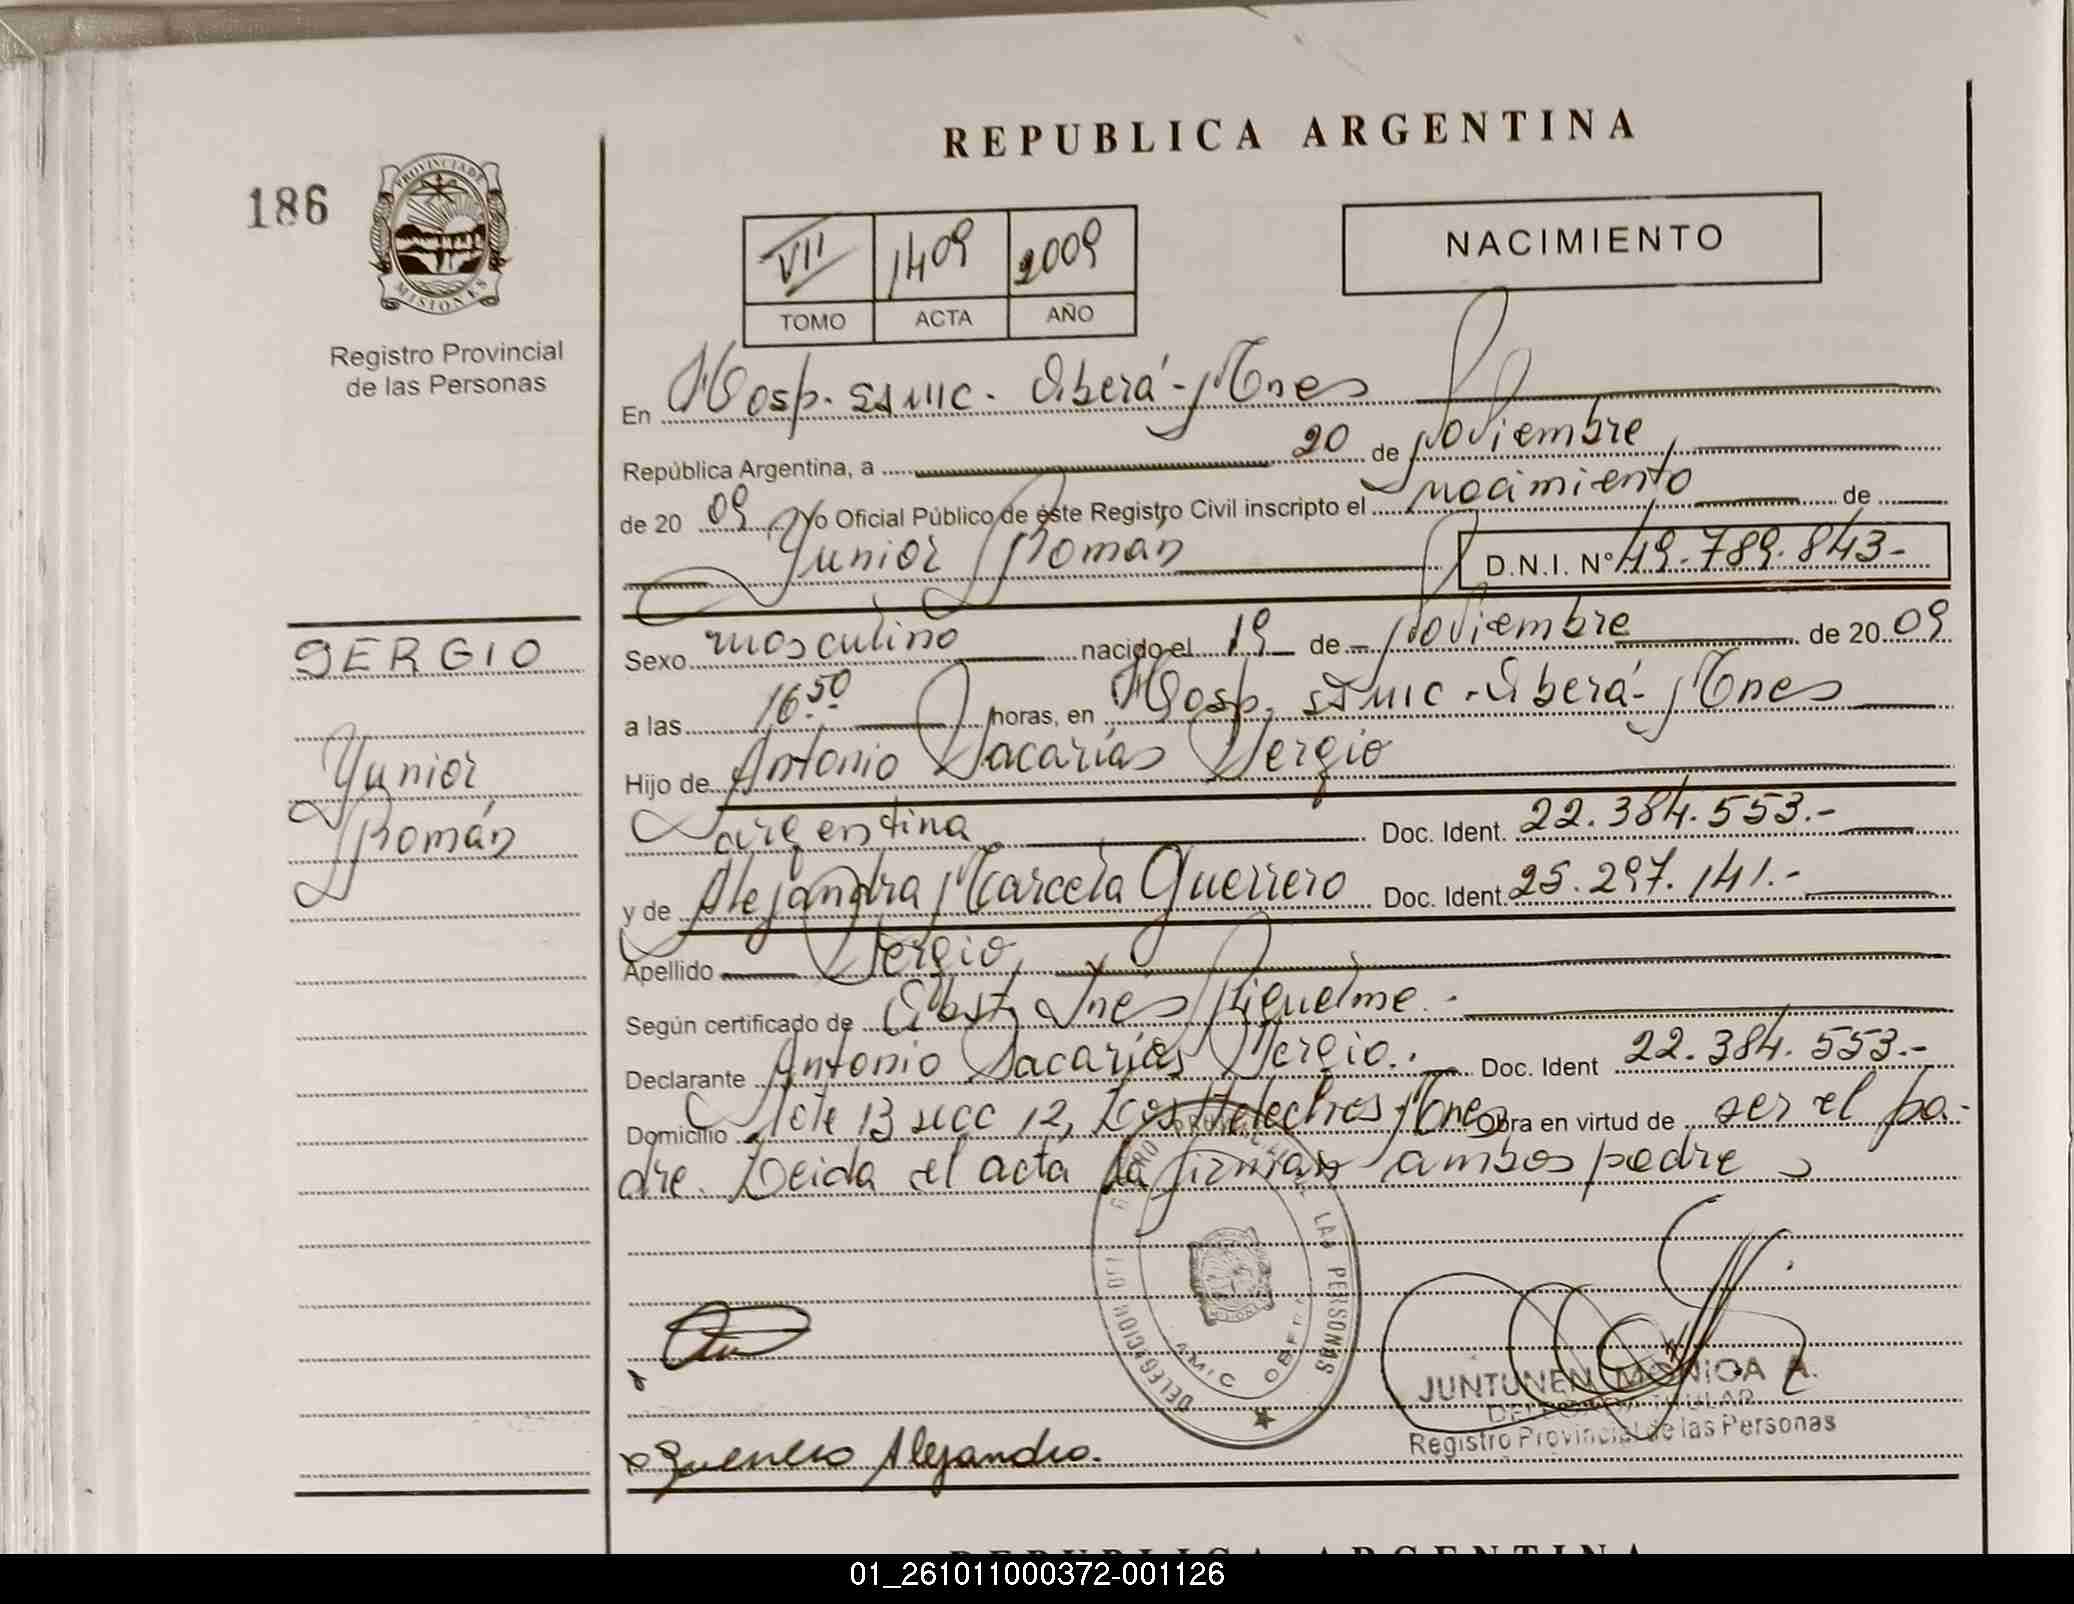 REPUBLICA ARGENTINA
186
PROVINCIA DE
MISIONES
Registro Provincial
de las Personas
VII 1409 2009
TOMO ACTA AÑO
NACIMIENTO
En Hosp. SAMIC - Oberá - Mnes
República Argentina, a 20 de Noviembre
de 2009 Yo Oficial Público de éste Registro Civil inscripto el nacimiento de
Yunior Román D.N.I. N° 49.789.843.-
SERGIO
Yunior
Román
Sexo masculino nacido el 19 de Noviembre de 2009
a las 16.50 horas, en Hosp. SAMIC - Oberá - Mnes
Hijo de Antonio Sacarías Sergio
argentina Doc. Ident. 22.384.553.-
y de Alejandra Marcela Guerrero Doc. Ident. 25.297.141.-
Apellido Sergio
Según certificado de Obst. Ines Riquelme.-
Declarante Antonio Sacarías Sergio.- Doc. Ident 22.384.553.-
Domicilio Lote 13 secc 12, Los Helechos Mnes Obra en virtud de ser el pa-
dre. Leida el acta la firman ambos padres
DELEGACION DEL LAS PERSONAS
SAMIC OBERA
JUNTUNEN MONICA A.
DELEGADA TITULAR
Registro Provincial de las Personas
x Guerrero Alejandra.
REPUBLICA ARGENTINA
01_261011000372-001126